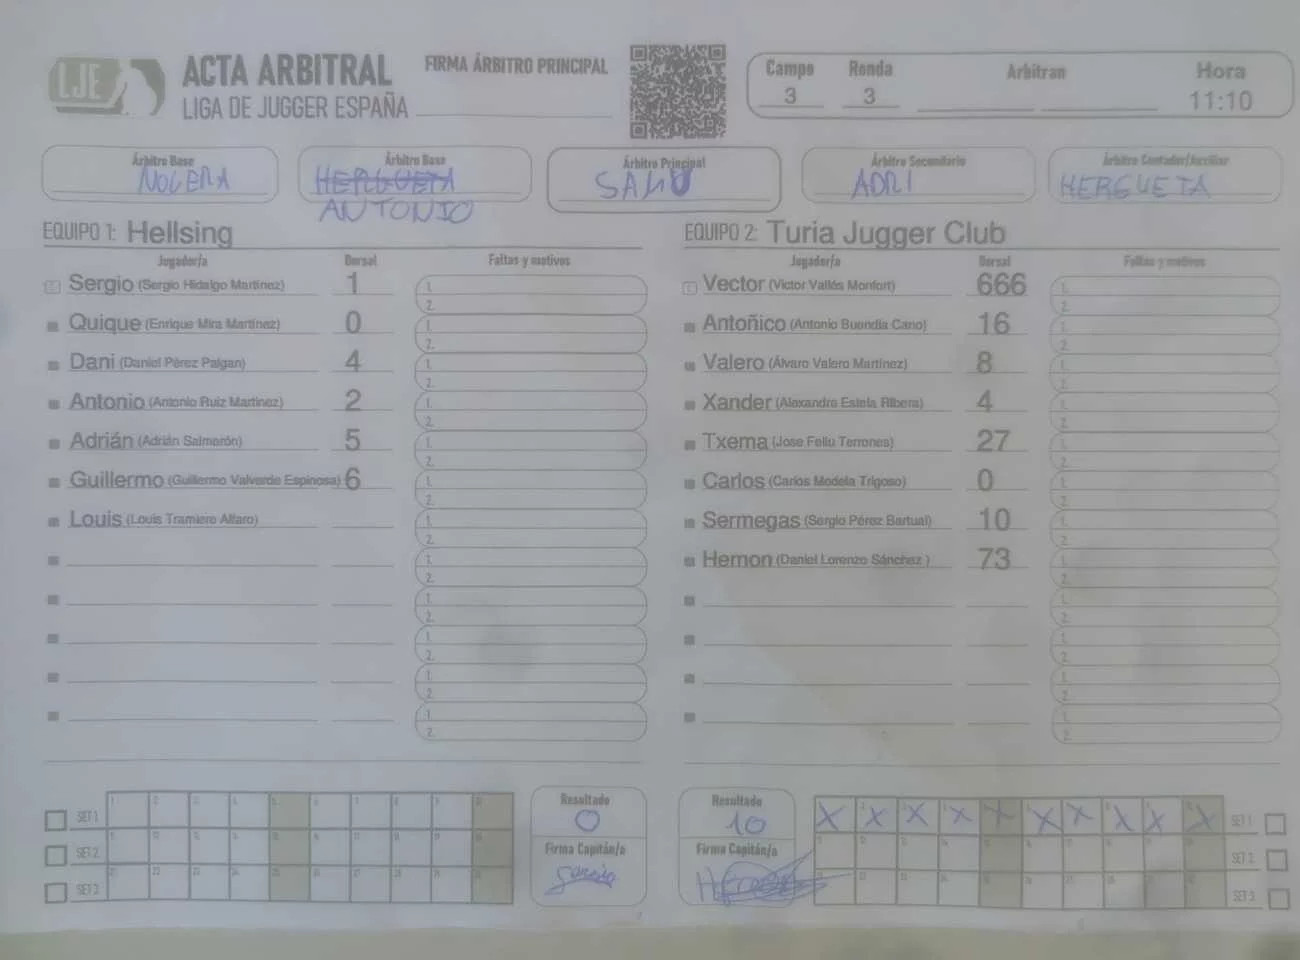 LJE
ACTA ARBITRAL
LIGA DE JUGGER ESPAÑA
FIRMA ÁRBITRO PRINCIPAL
Campo Ronda Arbitran Hora
3 3 11:10
Árbitro Base Árbitro Base Árbitro Principal Árbitro Secundario Árbitro Contador/Auxiliar
NOGERA HERGUETA ADRI HERGUETA
ANTONIO
EQUIPO 1: Hellsing
Jugador/a Dorsal Faltas y motivos
Sergio (Sergio Hidalgo Martínez) 1 1.
2.
Quique (Enrique Mira Martínez) 0 1.
2.
Dani (Daniel Pérez Palgan) 4 1.
2.
Antonio (Antonio Ruiz Martínez) 2 1.
2.
Adrián (Adrián Salmerón) 5 1.
2.
Guillermo (Guillermo Valverde Espinosa) 6 1.
2.
Louis (Louis Tramiere Alfaro) 1.
2.
1.
2.
1.
2.
1.
2.
1.
2.
1.
2.
EQUIPO 2: Turia Jugger Club
Jugador/a Dorsal Faltas y motivos
Vector (Victor Vallés Monfort) 666 1.
2.
Antoñico (Antonio Buendia Cano) 16 1.
2.
Valero (Álvaro Valero Martínez) 8 1.
2.
Xander (Alexandre Estela Ribera) 4 1.
2.
Txema (Jose Feliu Terrones) 27 1.
2.
Carlos (Carlos Modela Trigoso) 0 1.
2.
Sermegas (Sergio Pérez Bartual) 10 1.
2.
Hernon (Daniel Lorenzo Sánchez ) 73 1.
2.
1.
2.
1.
2.
1.
2.
1.
2.
SET 1
SET 2
SET 3
Resultado
0
Firma Capitán/a
Resultado
10
Firma Capitán/a
X X X X X X X X X X SET 1
SET 2
SET 3